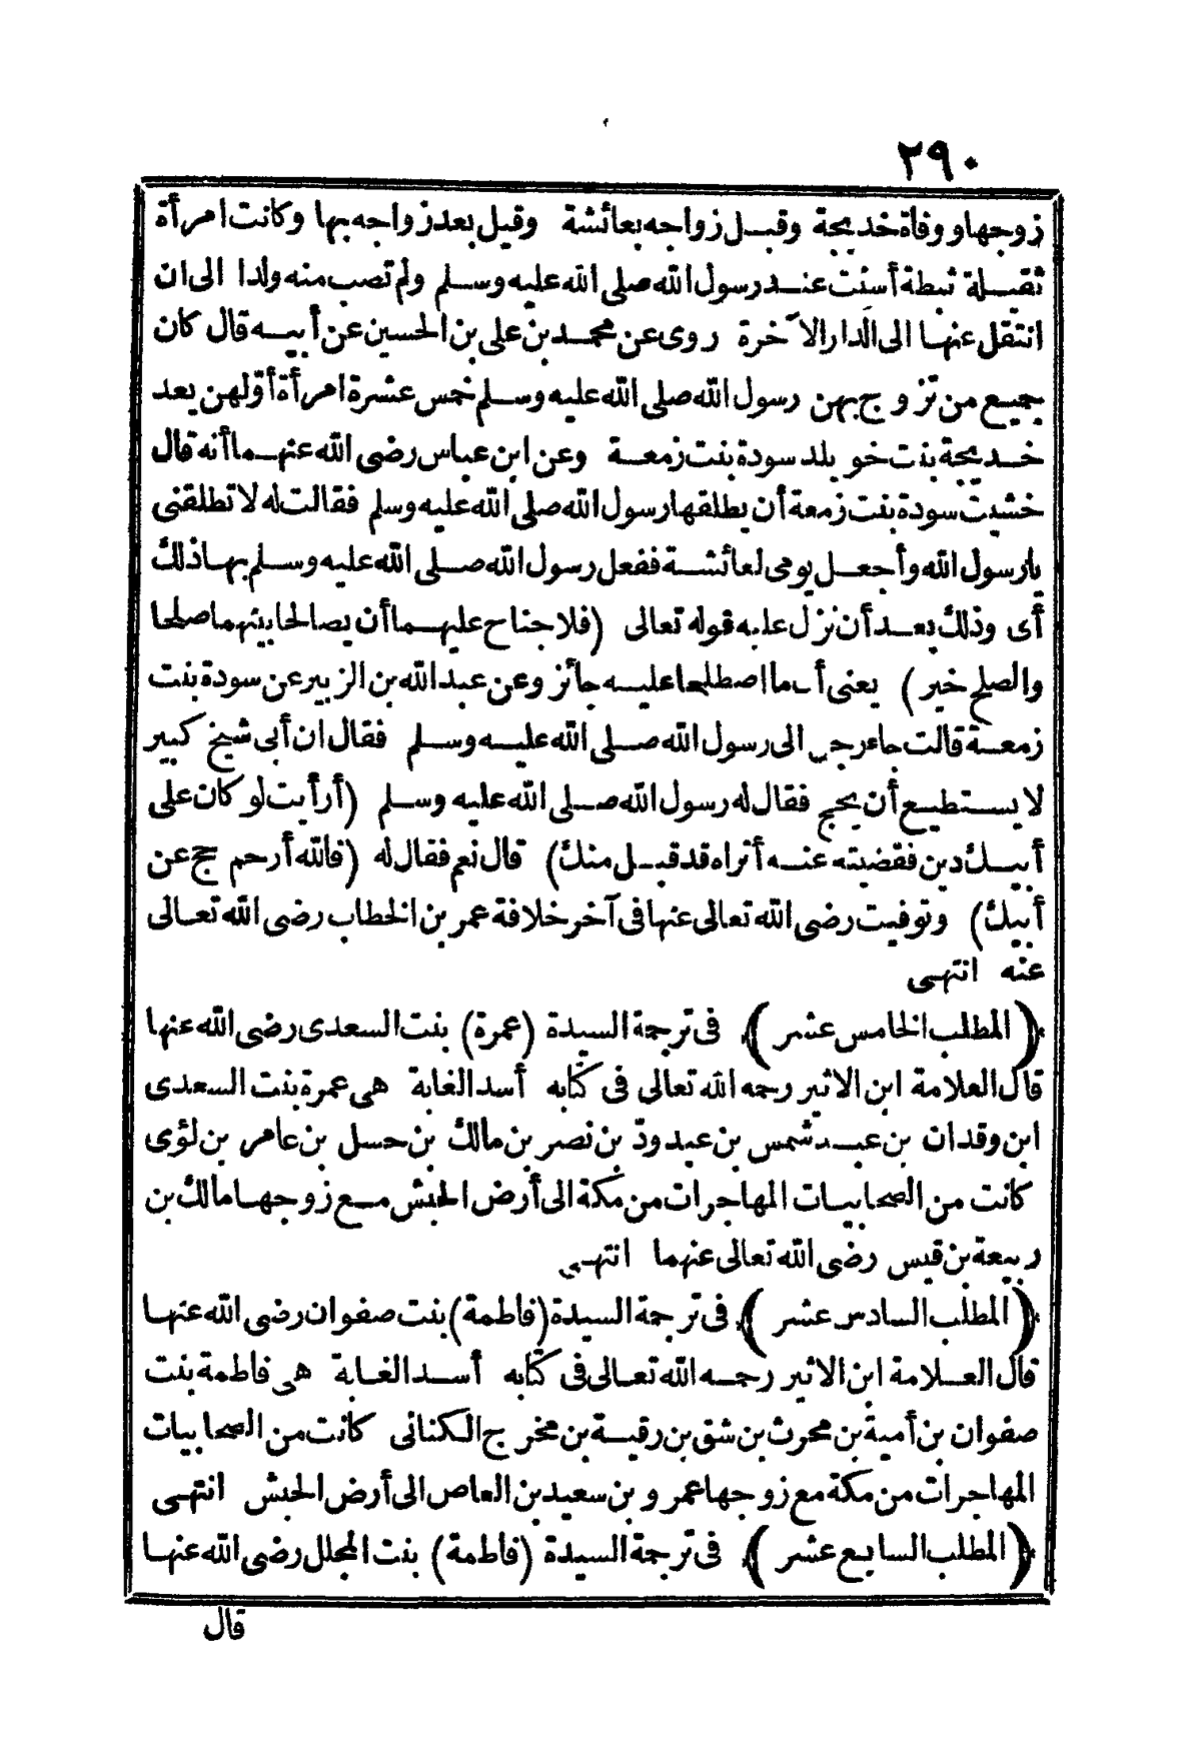 ٢٩٠
زوجها ووفاة خديجة وقبل زواجه بعائشة وقيل بعد زواجه بها وكانت امرأة
ثقيلة ثبطة أسنت عند رسول الله صلى الله عليه وسلم ولم تصب منه ولدا الى ان
انتقل عنها الى الدار الآخرة روى عن محمد بن على بن الحسين عن أبيه قال كان
جميع من تزوج بهن رسول الله صلى الله عليه وسلم خمس عشرة امرأة أولهن بعد
خديجة بنت خويلد سودة بنت زمعة وعن ابن عباس رضى الله عنهما أنه قال
خشيت سودة بنت زمعة أن يطلقها رسول الله صلى الله عليه وسلم فقالت له لا تطلقنى
يا رسول الله وأجعل يومى لعائشة ففعل رسول الله صلى الله عليه وسلم بها ذلك
أى وذلك بعد أن نزل عليه قوله تعالى (فلا جناح عليهما أن يصالحا بينهما صلحا
والصلح خير) يعنى أن ما اصطلحا عليه جائز وعن عبد الله بن الزبير عن سودة بنت
زمعة قالت جاء رجل الى رسول الله صلى الله عليه وسلم فقال ان أبى شيخ كبير
لا يستطيع أن يحج فقال له رسول الله صلى الله عليه وسلم (أرأيت لو كان على
أبيك دين فقضيته عنه أتراه قد قبل منك) قال نعم فقال له (فالله أرحم حج عن
أبيك) وتوفيت رضى الله تعالى عنها فى آخر خلافة عمر بن الخطاب رضى الله تعالى
عنه انتهى
(المطلب الخامس عشر) فى ترجمة السيدة (عمرة) بنت السعدى رضى الله عنها
قال العلامة ابن الاثير رحمه الله تعالى فى كتابه أسد الغابة هى عمرة بنت السعدى
ابن وقدان بن عبد شمس بن عبد ودّ بن نصر بن مالك بن حسل بن عامر بن لؤى
كانت من الصحابيات المهاجرات من مكة الى أرض الحبش مع زوجها مالك بن
ربيعة بن قيس رضى الله تعالى عنهما انتهى
(المطلب السادس عشر) فى ترجمة السيدة (فاطمة) بنت صفوان رضى الله عنها
قال العلامة ابن الاثير رحمه الله تعالى فى كتابه أسد الغابة هى فاطمة بنت
صفوان بن أمية بن محرث بن شق بن رقية بن مخرج الكنانى كانت من الصحابيات
المهاجرات من مكة مع زوجها عمرو بن سعيد بن العاص الى أرض الحبش انتهى
(المطلب السابع عشر) فى ترجمة السيدة (فاطمة) بنت المجلل رضى الله عنها
قال